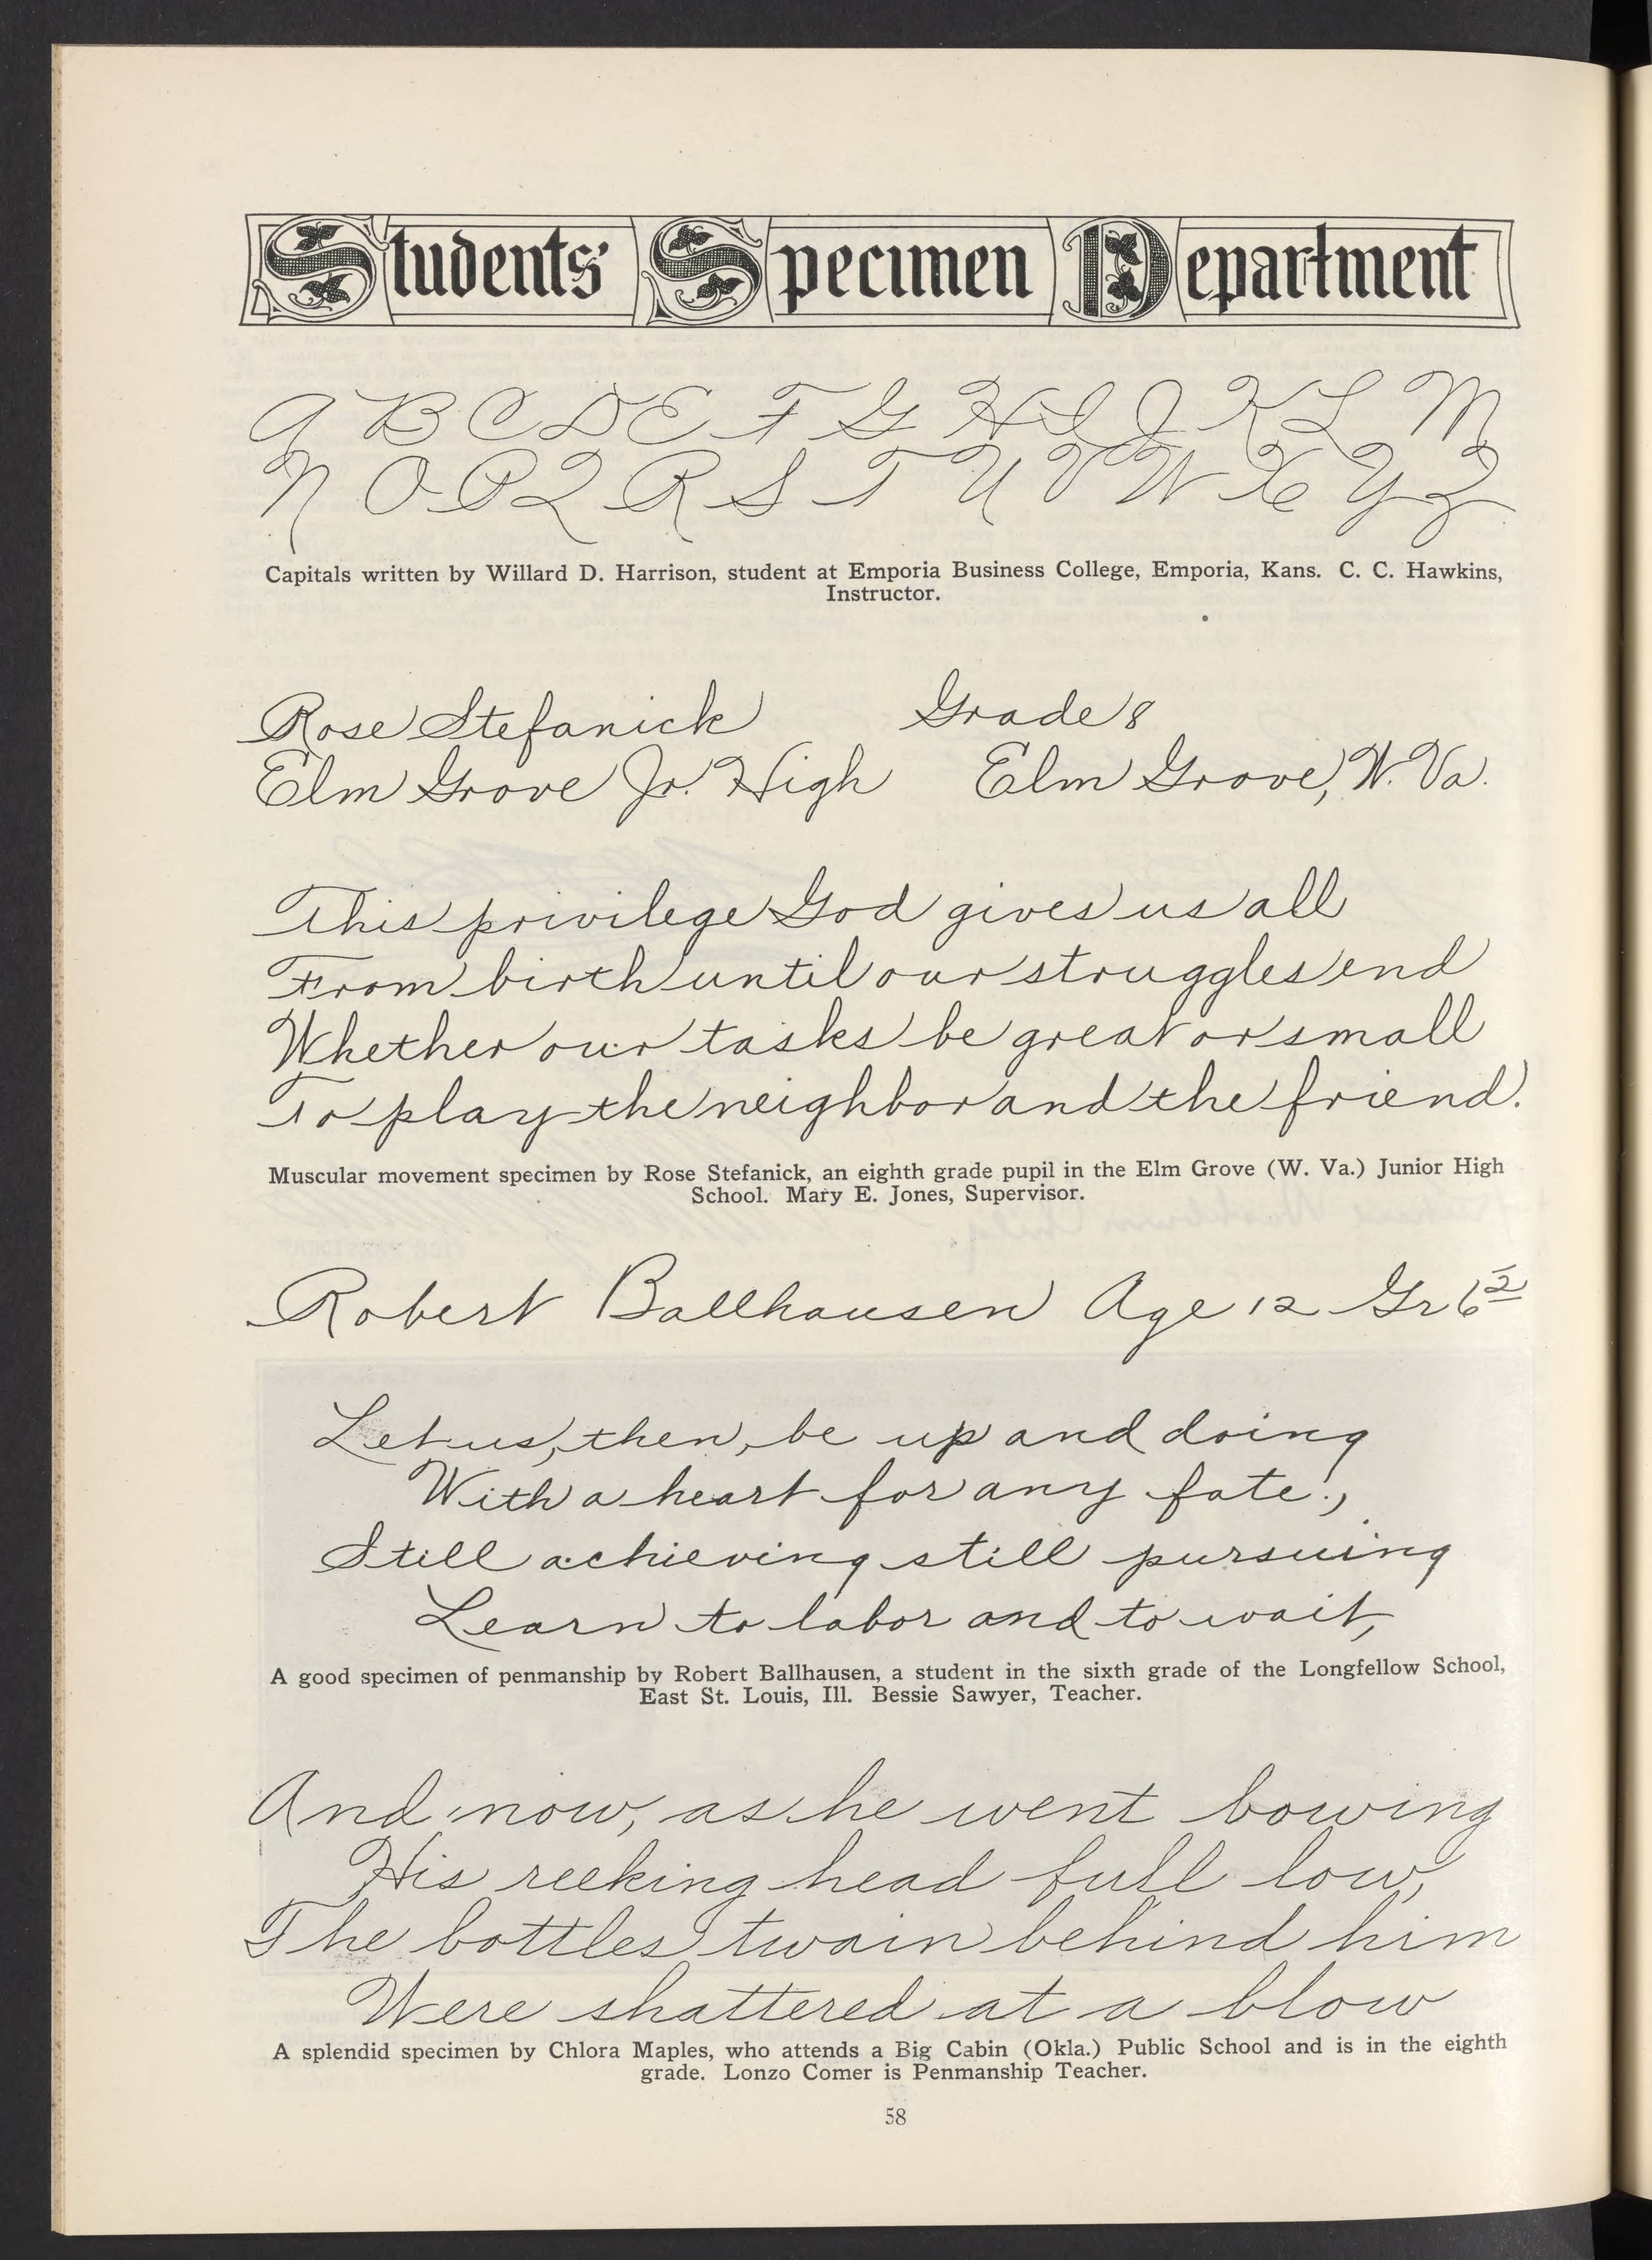 Students' Specimen Department
A B C D E F G H I J K L M
N O P Q R S T U V W X Y Z
Capitals written by Willard D. Harrison, student at Emporia Business College, Emporia, Kans. C. C. Hawkins,
Instructor.
Rose Stefanick Grade 8
Elm Grove Jr. High Elm Grove, W. Va.
This privilege God gives us all
From birth until our struggles end
Whether our tasks be great or small
To play the neighbor and the friend.
Muscular movement specimen by Rose Stefanick, an eighth grade pupil in the Elm Grove (W. Va.) Junior High
School. Mary E. Jones, Supervisor.
Robert Ballhausen Age 12 Gr 6 2
Let us, then, be up and doing
With a heart for any fate.,
Still achieving still pursuing
Learn to labor and to wait,
A good specimen of penmanship by Robert Ballhausen, a student in the sixth grade of the Longfellow School,
East St. Louis, Ill. Bessie Sawyer, Teacher.
And now, as he went bowing
His reeking head full low,
The bottles twain behind him
Were shattered at a blow
A splendid specimen by Chlora Maples, who attends a Big Cabin (Okla.) Public School and is in the eighth
grade. Lonzo Comer is Penmanship Teacher.
58